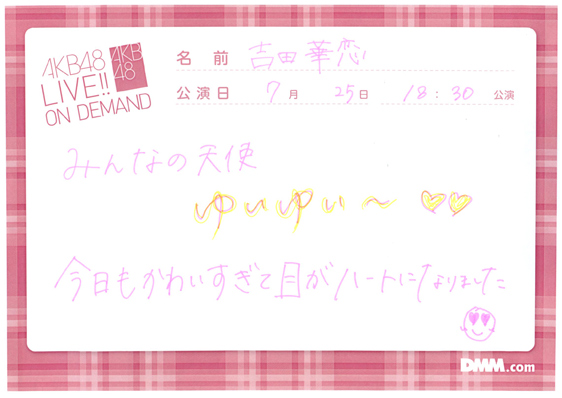 AKB48
LIVE!!
ON DEMAND
AKB
48
名前 吉田華恋
公演日 7月 25日 18:30 公演
みんなの天使
ゆいゆい～♡♡
今日もかわいすぎて目がハートになりました
DMM.com